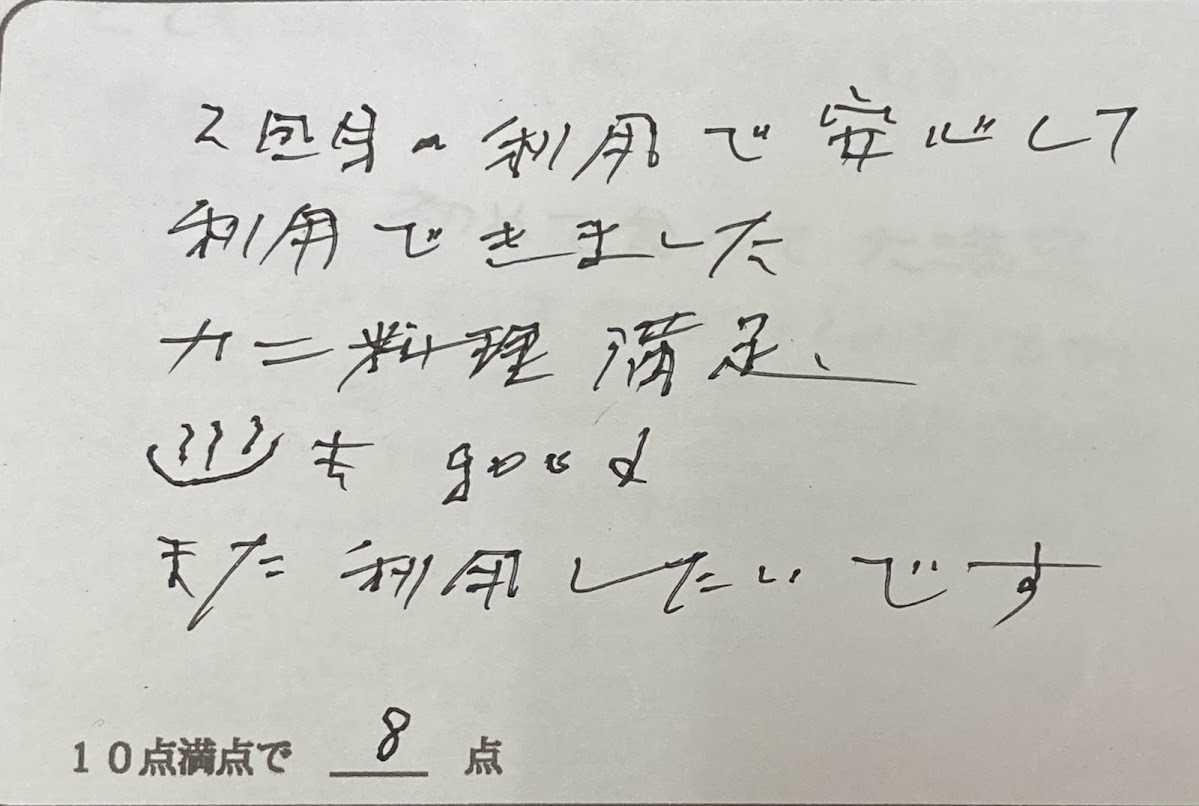 2回目の利用で安心して
利用できました
カニ料理満足、
♨も good
また利用したいです
10点満点で 8 点